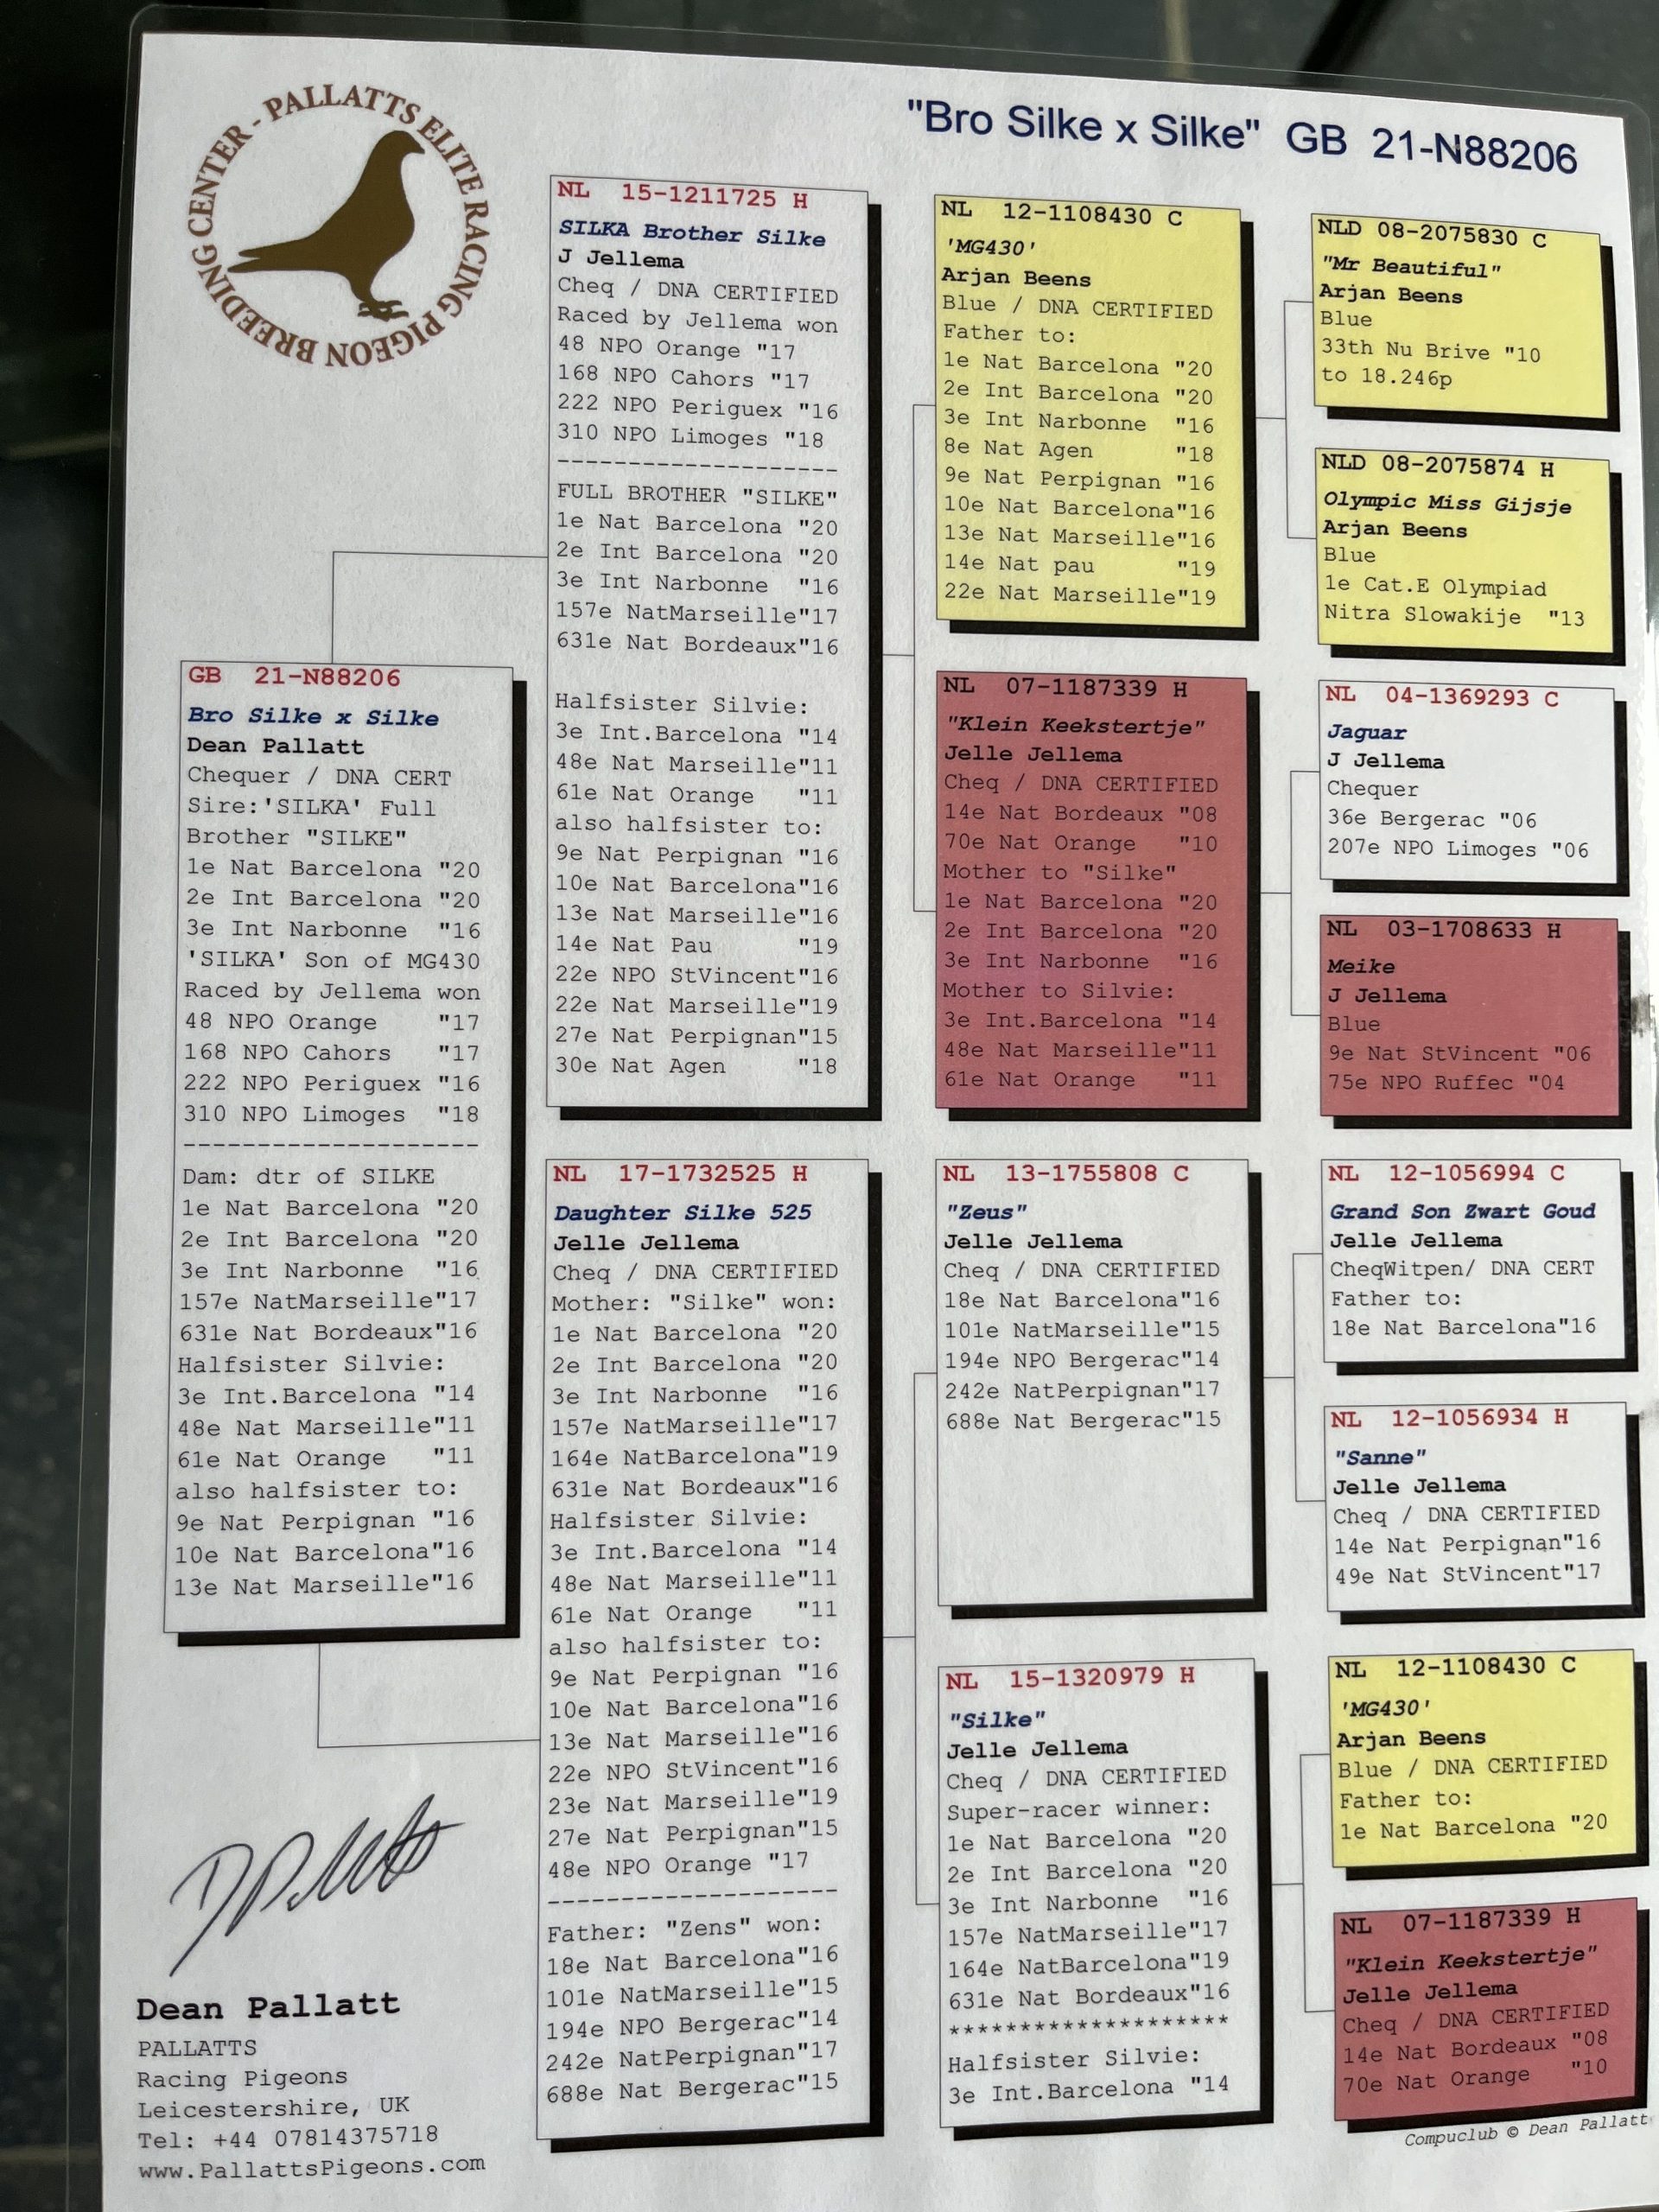 PALLATTS ELITE RACING PIGEON BREEDING CENTER -
"Bro Silke x Silke" GB 21-N88206
GB 21-N88206
Bro Silke x Silke
Dean Pallatt
Chequer / DNA CERT
Sire:'SILKA' Full
Brother "SILKE"
1e Nat Barcelona "20
2e Int Barcelona "20
3e Int Narbonne "16
'SILKA' Son of MG430
Raced by Jellema won
48 NPO Orange "17
168 NPO Cahors "17
222 NPO Periguex "16
310 NPO Limoges "18
--------------------
Dam: dtr of SILKE
1e Nat Barcelona "20
2e Int Barcelona "20
3e Int Narbonne "16
157e NatMarseille"17
631e Nat Bordeaux"16
Halfsister Silvie:
3e Int.Barcelona "14
48e Nat Marseille"11
61e Nat Orange "11
also halfsister to:
9e Nat Perpignan "16
10e Nat Barcelona"16
13e Nat Marseille"16
NL 15-1211725 H
SILKA Brother Silke
J Jellema
Cheq / DNA CERTIFIED
Raced by Jellema won
48 NPO Orange "17
168 NPO Cahors "17
222 NPO Periguex "16
310 NPO Limoges "18
--------------------
FULL BROTHER "SILKE"
1e Nat Barcelona "20
2e Int Barcelona "20
3e Int Narbonne "16
157e NatMarseille"17
631e Nat Bordeaux"16
Halfsister Silvie:
3e Int.Barcelona "14
48e Nat Marseille"11
61e Nat Orange "11
also halfsister to:
9e Nat Perpignan "16
10e Nat Barcelona"16
13e Nat Marseille"16
14e Nat Pau "19
22e NPO StVincent"16
22e Nat Marseille"19
27e Nat Perpignan"15
30e Nat Agen "18
NL 17-1732525 H
Daughter Silke 525
Jelle Jellema
Cheq / DNA CERTIFIED
Mother: "Silke" won:
1e Nat Barcelona "20
2e Int Barcelona "20
3e Int Narbonne "16
157e NatMarseille"17
164e NatBarcelona"19
631e Nat Bordeaux"16
Halfsister Silvie:
3e Int.Barcelona "14
48e Nat Marseille"11
61e Nat Orange "11
also halfsister to:
9e Nat Perpignan "16
10e Nat Barcelona"16
13e Nat Marseille"16
22e NPO StVincent"16
23e Nat Marseille"19
27e Nat Perpignan"15
48e NPO Orange "17
--------------------
Father: "Zens" won:
18e Nat Barcelona"16
101e NatMarseille"15
194e NPO Bergerac"14
242e NatPerpignan"17
688e Nat Bergerac"15
NL 12-1108430 C
'MG430'
Arjan Beens
Blue / DNA CERTIFIED
Father to:
1e Nat Barcelona "20
2e Int Barcelona "20
3e Int Narbonne "16
8e Nat Agen "18
9e Nat Perpignan "16
10e Nat Barcelona"16
13e Nat Marseille"16
14e Nat pau "19
22e Nat Marseille"19
NL 07-1187339 H
"Klein Keekstertje"
Jelle Jellema
Cheq / DNA CERTIFIED
14e Nat Bordeaux "08
70e Nat Orange "10
Mother to "Silke"
1e Nat Barcelona "20
2e Int Barcelona "20
3e Int Narbonne "16
Mother to Silvie:
3e Int.Barcelona "14
48e Nat Marseille"11
61e Nat Orange "11
NL 13-1755808 C
"Zeus"
Jelle Jellema
Cheq / DNA CERTIFIED
18e Nat Barcelona"16
101e NatMarseille"15
194e NPO Bergerac"14
242e NatPerpignan"17
688e Nat Bergerac"15
NL 15-1320979 H
"Silke"
Jelle Jellema
Cheq / DNA CERTIFIED
Super-racer winner:
1e Nat Barcelona "20
2e Int Barcelona "20
3e Int Narbonne "16
157e NatMarseille"17
164e NatBarcelona"19
631e Nat Bordeaux"16
********************
Halfsister Silvie:
3e Int.Barcelona "14
NLD 08-2075830 C
"Mr Beautiful"
Arjan Beens
Blue
33th Nu Brive "10
to 18.246p
NLD 08-2075874 H
Olympic Miss Gijsje
Arjan Beens
Blue
1e Cat.E Olympiad
Nitra Slowakije "13
NL 04-1369293 C
Jaguar
J Jellema
Chequer
36e Bergerac "06
207e NPO Limoges "06
NL 03-1708633 H
Meike
J Jellema
Blue
9e Nat StVincent "06
75e NPO Ruffec "04
NL 12-1056994 C
Grand Son Zwart Goud
Jelle Jellema
CheqWitpen/ DNA CERT
Father to:
18e Nat Barcelona"16
NL 12-1056934 H
"Sanne"
Jelle Jellema
Cheq / DNA CERTIFIED
14e Nat Perpignan"16
49e Nat StVincent"17
NL 12-1108430 C
'MG430'
Arjan Beens
Blue / DNA CERTIFIED
Father to:
1e Nat Barcelona "20
NL 07-1187339 H
"Klein Keekstertje"
Jelle Jellema
Cheq / DNA CERTIFIED
14e Nat Bordeaux "08
70e Nat Orange "10
Dean Pallatt
PALLATTS
Racing Pigeons
Leicestershire, UK
Tel: +44 07814375718
www.PallattsPigeons.com
Compuclub © Dean Pallatt